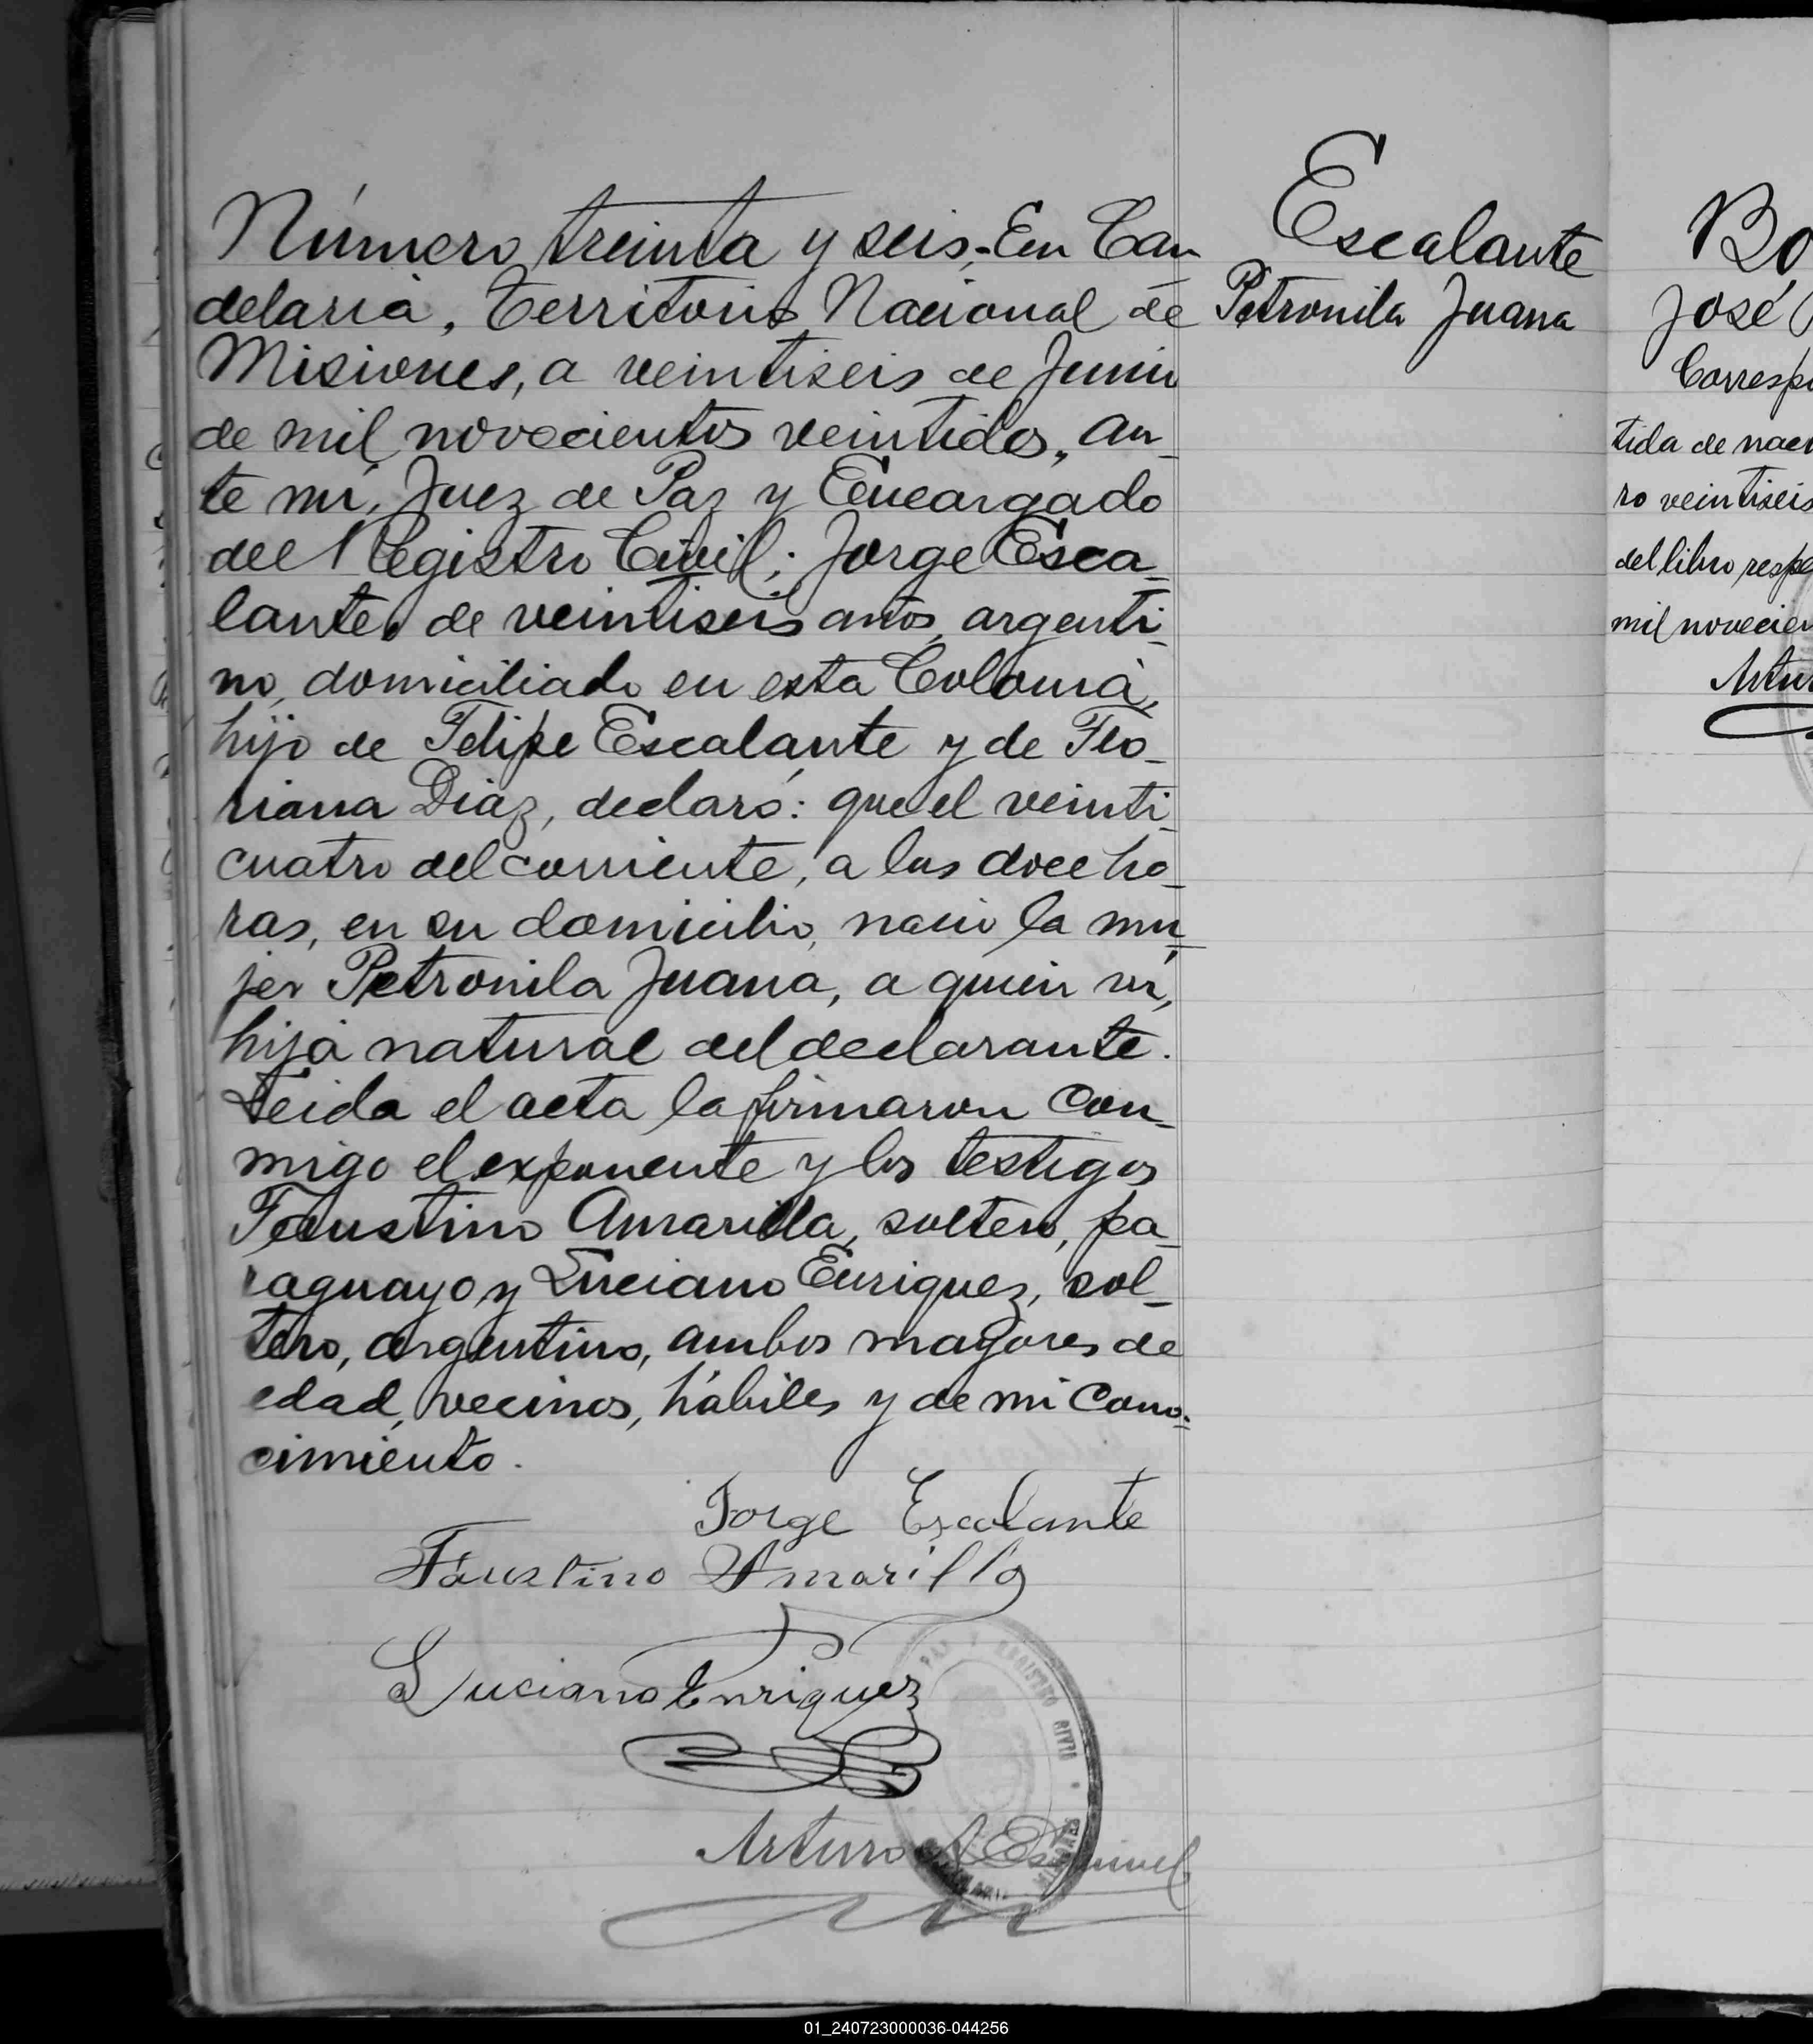 Número treinta y seis.- En Can
delaria, Territorio Nacional de
Misiones, a veintiseis de Junio
de mil novecientos veintidos, an-
te mí, Juez de Paz y Encargado
del Registro Civil; Jorge Esca-
lante, de veintiseis años, argenti-
no, domiciliado en esta Colonia,
hijo de Felipe Escalante y de Flo-
riana Diaz, declaró: que el veinti-
cuatro del corriente, a las doce ho-
ras, en su domicilio, nació la mu-
jer Petronila Juana, a quien ví,
hija natural del declarante.
Leida el acta la firmaron con-
migo el exponente y los testigos
Faustino Amarilla, soltero, pa-
raguayo y Luciano Enriquez, sol-
tero, argentino, ambos mayores de
edad, vecinos, hábiles y de mi cono-
cimiento.
Jorge Escalante
Faustino Amarilla
Luciano Enriquez
Arturo A Esquivel
PAZ Y REGISTRO CIVIL
MISIONES
Escalante
Petronila Juana
Bo
José
Corresp
tida de naci
ro veintiseis
del libro respe
mil novecien
Artur
01_240723000036-044256